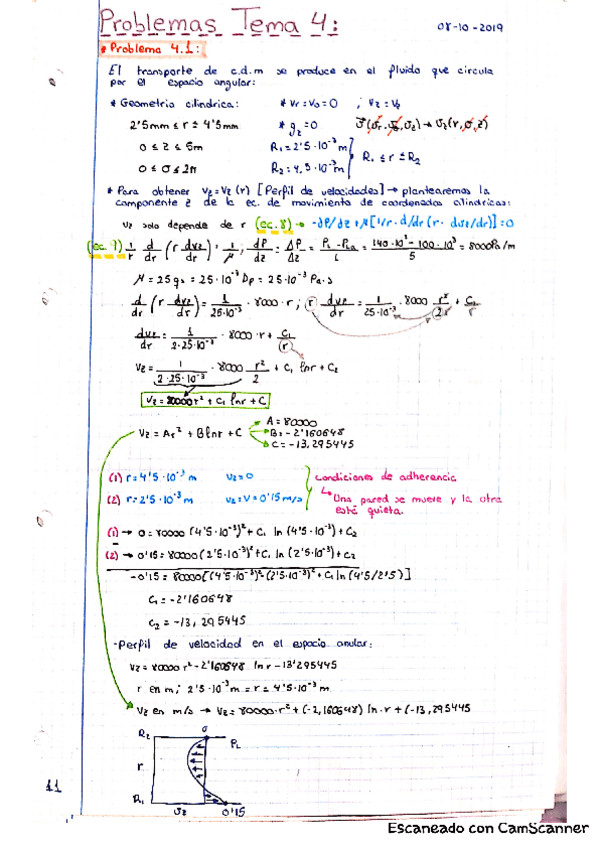 Problemas Tema 4:
08-10-2019
* Problema 4.1:
El transporte de c.d.m se produce en el fluido que circula
por el espacio angular:
* Geometría cilíndrica:   * Vr=Vθ=0 ; Vz=
2'5mm ≤ r ≤ 4'5mm   * g_z=0
0 ≤ z ≤ 5m   R₁=2'5·10⁻³ m
0 ≤ σ ≤ 2π   R₂=4,5·10⁻³ m   R₁ ≤ r ≤ R₂
* Para obtener Vz=Vz(r) [Perfil de velocidades] → plantearemos la
componente z de la ec. de movimiento de coordenadas cilíndricas:
Vz solo depende de r (ec.8) → -dP/dz + μ[1/r · d/dr (r · dvz/dr)] = 0
(ec. 9) 1/r d/dr (r dvz/dr) = 1/μ ; dP/dz = ΔP/Δz = = 140·10³ - 100·10³ / 5 = 8000Pa/m
μ = 25 = 25·10⁻³ = 25·10⁻³ Pa·s
d/dr (r dvz/dr) = 1/25·10⁻³ · 8000 · r ; r dvz/dr = 1/25·10⁻³ · 8000 r²/2r + C₁/r
dvz/dr = 1/2·25·10⁻³ · 8000 · r + C₁/r
Vz = 1/2·25·10⁻³ · 8000 r²/2 + C₁ lnr + C₂
Vz = 80000r² + C₁ lnr + C
Vz = Ar² + Blnr + C
A = 80000
B = -2'160648
C = -13,295445
(1) r = 4'5·10⁻³ m   Vz=0
(2) r = 2'5·10⁻³ m   Vz = V = 0'15 m/s
Condiciones de adherencia
↳ Una pared se mueve y la otra
está quieta.
(1) → 0 = 80000 (4'5·10⁻³)² + C₁ ln (4'5·10⁻³) + C₂
(2) → 0'15 = 80000 (2'5·10⁻³)² + C₁ ln (2'5·10⁻³) + C₂
-0'15 = 80000[(4'5·10⁻³)² - (2'5·10⁻³)² + C₁ ln (4'5/2'5)]
C₁ = -2'160648
C₂ = -13,295445
- Perfil de velocidad en el espacio anular:
Vz = 80000 r² - 2'160648 lnr - 13'295445
r en m; 2'5·10⁻³ m = r = 4'5·10⁻³ m
Vz en m/s → Vz = 80000·r² + (-2,160648) ln·r + (-13,295445
R₂
0
PL
r
R₁
Vz
0'15
11
Escaneado con CamScanner